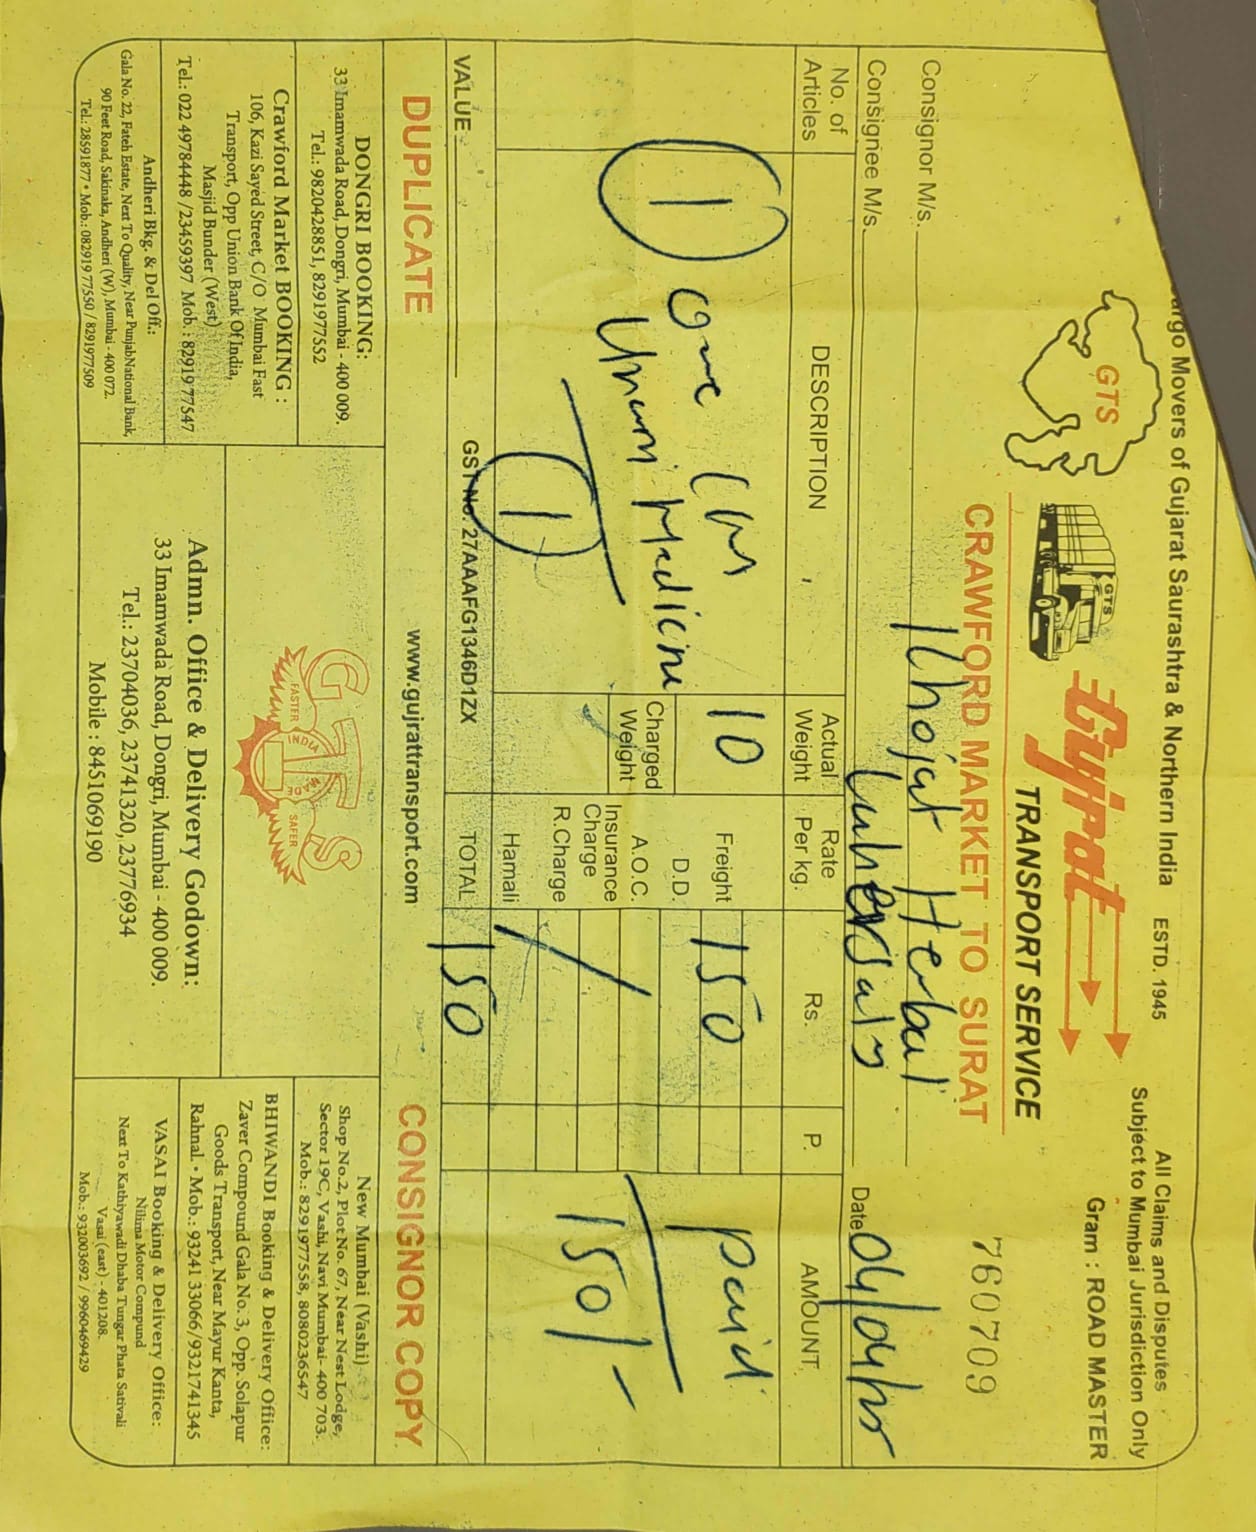 argo Movers of Gujarat Saurashtra & Northern India ESTD. 1945
All Claims and Disputes
Subject to Mumbai Jurisdiction Only
Gram : ROAD MASTER
GTS
GTS
Gujrat
TRANSPORT SERVICE
CRAWFORD MARKET TO SURAT
760709
Consignor M/s. Herbal
Consignee M/s. Universals
Date 04/04/
No. of Articles
DESCRIPTION
Actual Weight
Rate Per kg.
Rs.
P.
AMOUNT
1
One
Unani Medicine
1
10
Charged Weight
Freight 150
D.D.
A.O.C.
Insurance Charge
R.Charge
Hamali
TOTAL 150
paid
150/-
VALUE
GST No. 27AAAFG1346D1ZX
DUPLICATE
www.gujrattransport.com
CONSIGNOR COPY
DONGRI BOOKING:
33 Imamwada Road, Dongri, Mumbai - 400 009.
Tel.: 9820428851, 8291977552
Crawford Market BOOKING :
106, Kazi Sayed Street, C/O Mumbai Fast
Transport, Opp Union Bank Of India,
Masjid Bunder (West)
Tel.: 022 49784448 /23459397 Mob. : 82919 77547
Andheri Bkg. & Del Off.:
Gala No. 22, Fateh Estate, Next To Quality, Near PunjabNational Bank,
90 Feet Road, Sakinaka, Andheri (W), Mumbai - 400 072.
Tel.: 28591877 • Mob.: 082919 77550 / 8291977509
GTS
FASTER
INDIA
SAFER
Admn. Office & Delivery Godown:
33 Imamwada Road, Dongri, Mumbai - 400 009.
Tel.: 23704036, 23741320, 23776934
Mobile : 8451069190
New Mumbai (Vashi)
Shop No.2, Plot No. 67, Near Nest Lodge,
Sector 19C, Vashi, Navi Mumbai- 400 703.
Mob.: 8291977558, 8080236547
BHIWANDI Booking & Delivery Office:
Zaver Compound Gala No. 3, Opp. Solapur
Goods Transport, Near Mayur Kanta,
Rahnal. • Mob.: 93241 33066/9321741345
VASAI Booking & Delivery Office:
Nilima Motor Compund
Next To Kathiyawadi Dhaba Tungar Phata Sativali
Vasai (east) - 401208.
Mob.: 932003692 / 9960469429